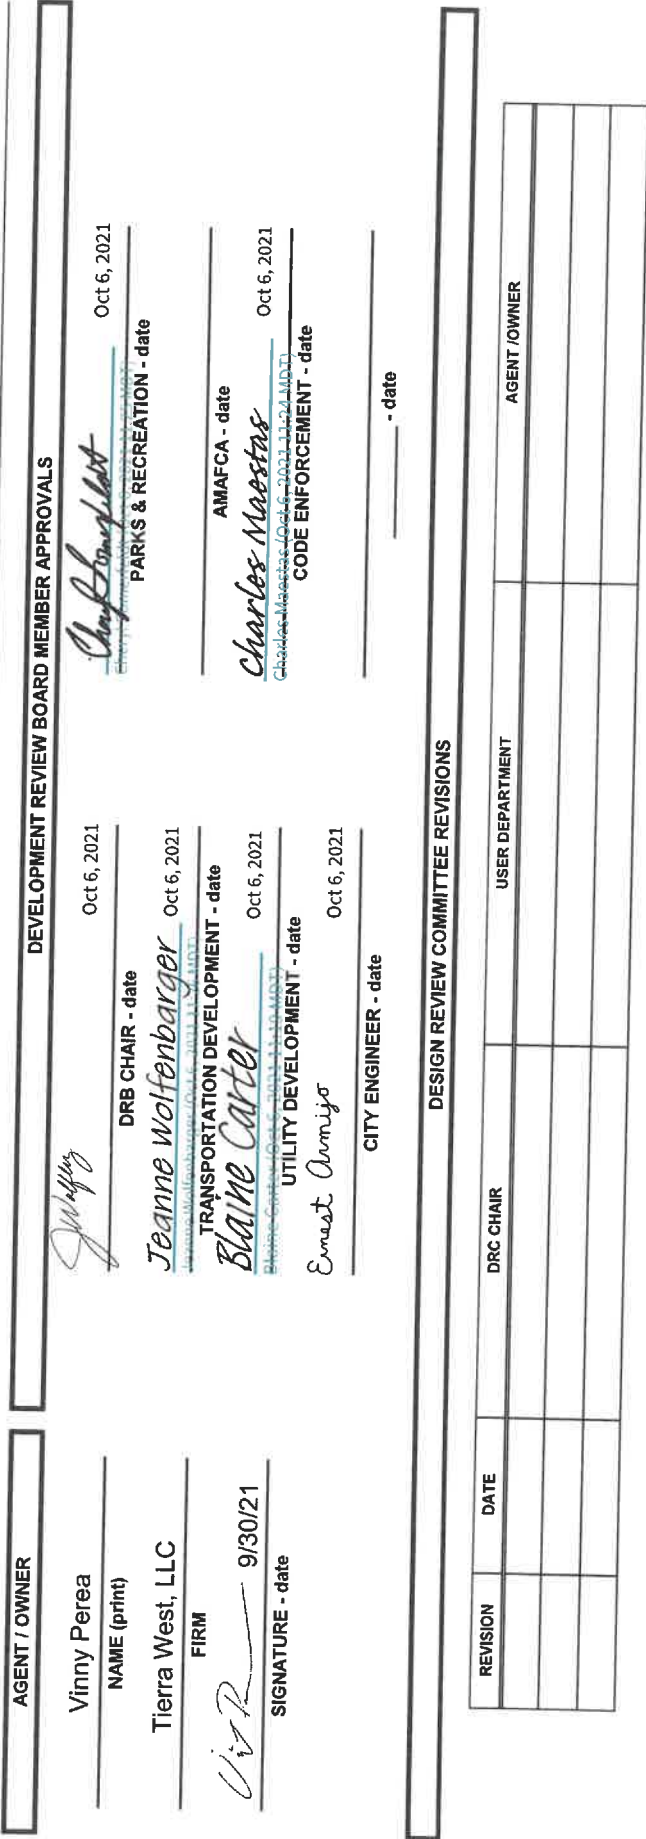 AGENT / OWNER
Vinny Perea
NAME (print)
Tierra West, LLC
FIRM
9/30/21
SIGNATURE - date
DEVELOPMENT REVIEW BOARD MEMBER APPROVALS
Oct 6, 2021
DRB CHAIR - date
Jeanne Wolfenbarger Oct 6, 2021
TRANSPORTATION DEVELOPMENT - date
Blaine Carter Oct 6, 2021
UTILITY DEVELOPMENT - date
Ernest Armijo Oct 6, 2021
CITY ENGINEER - date
Oct 6, 2021
PARKS & RECREATION - date
AMAFCA - date
Charles Maestas Oct 6, 2021
Charles Maestas (Oct 6, 2021 11:24 MDT)
CODE ENFORCEMENT - date
- date
DESIGN REVIEW COMMITTEE REVISIONS
REVISION DATE DRC CHAIR USER DEPARTMENT AGENT /OWNER